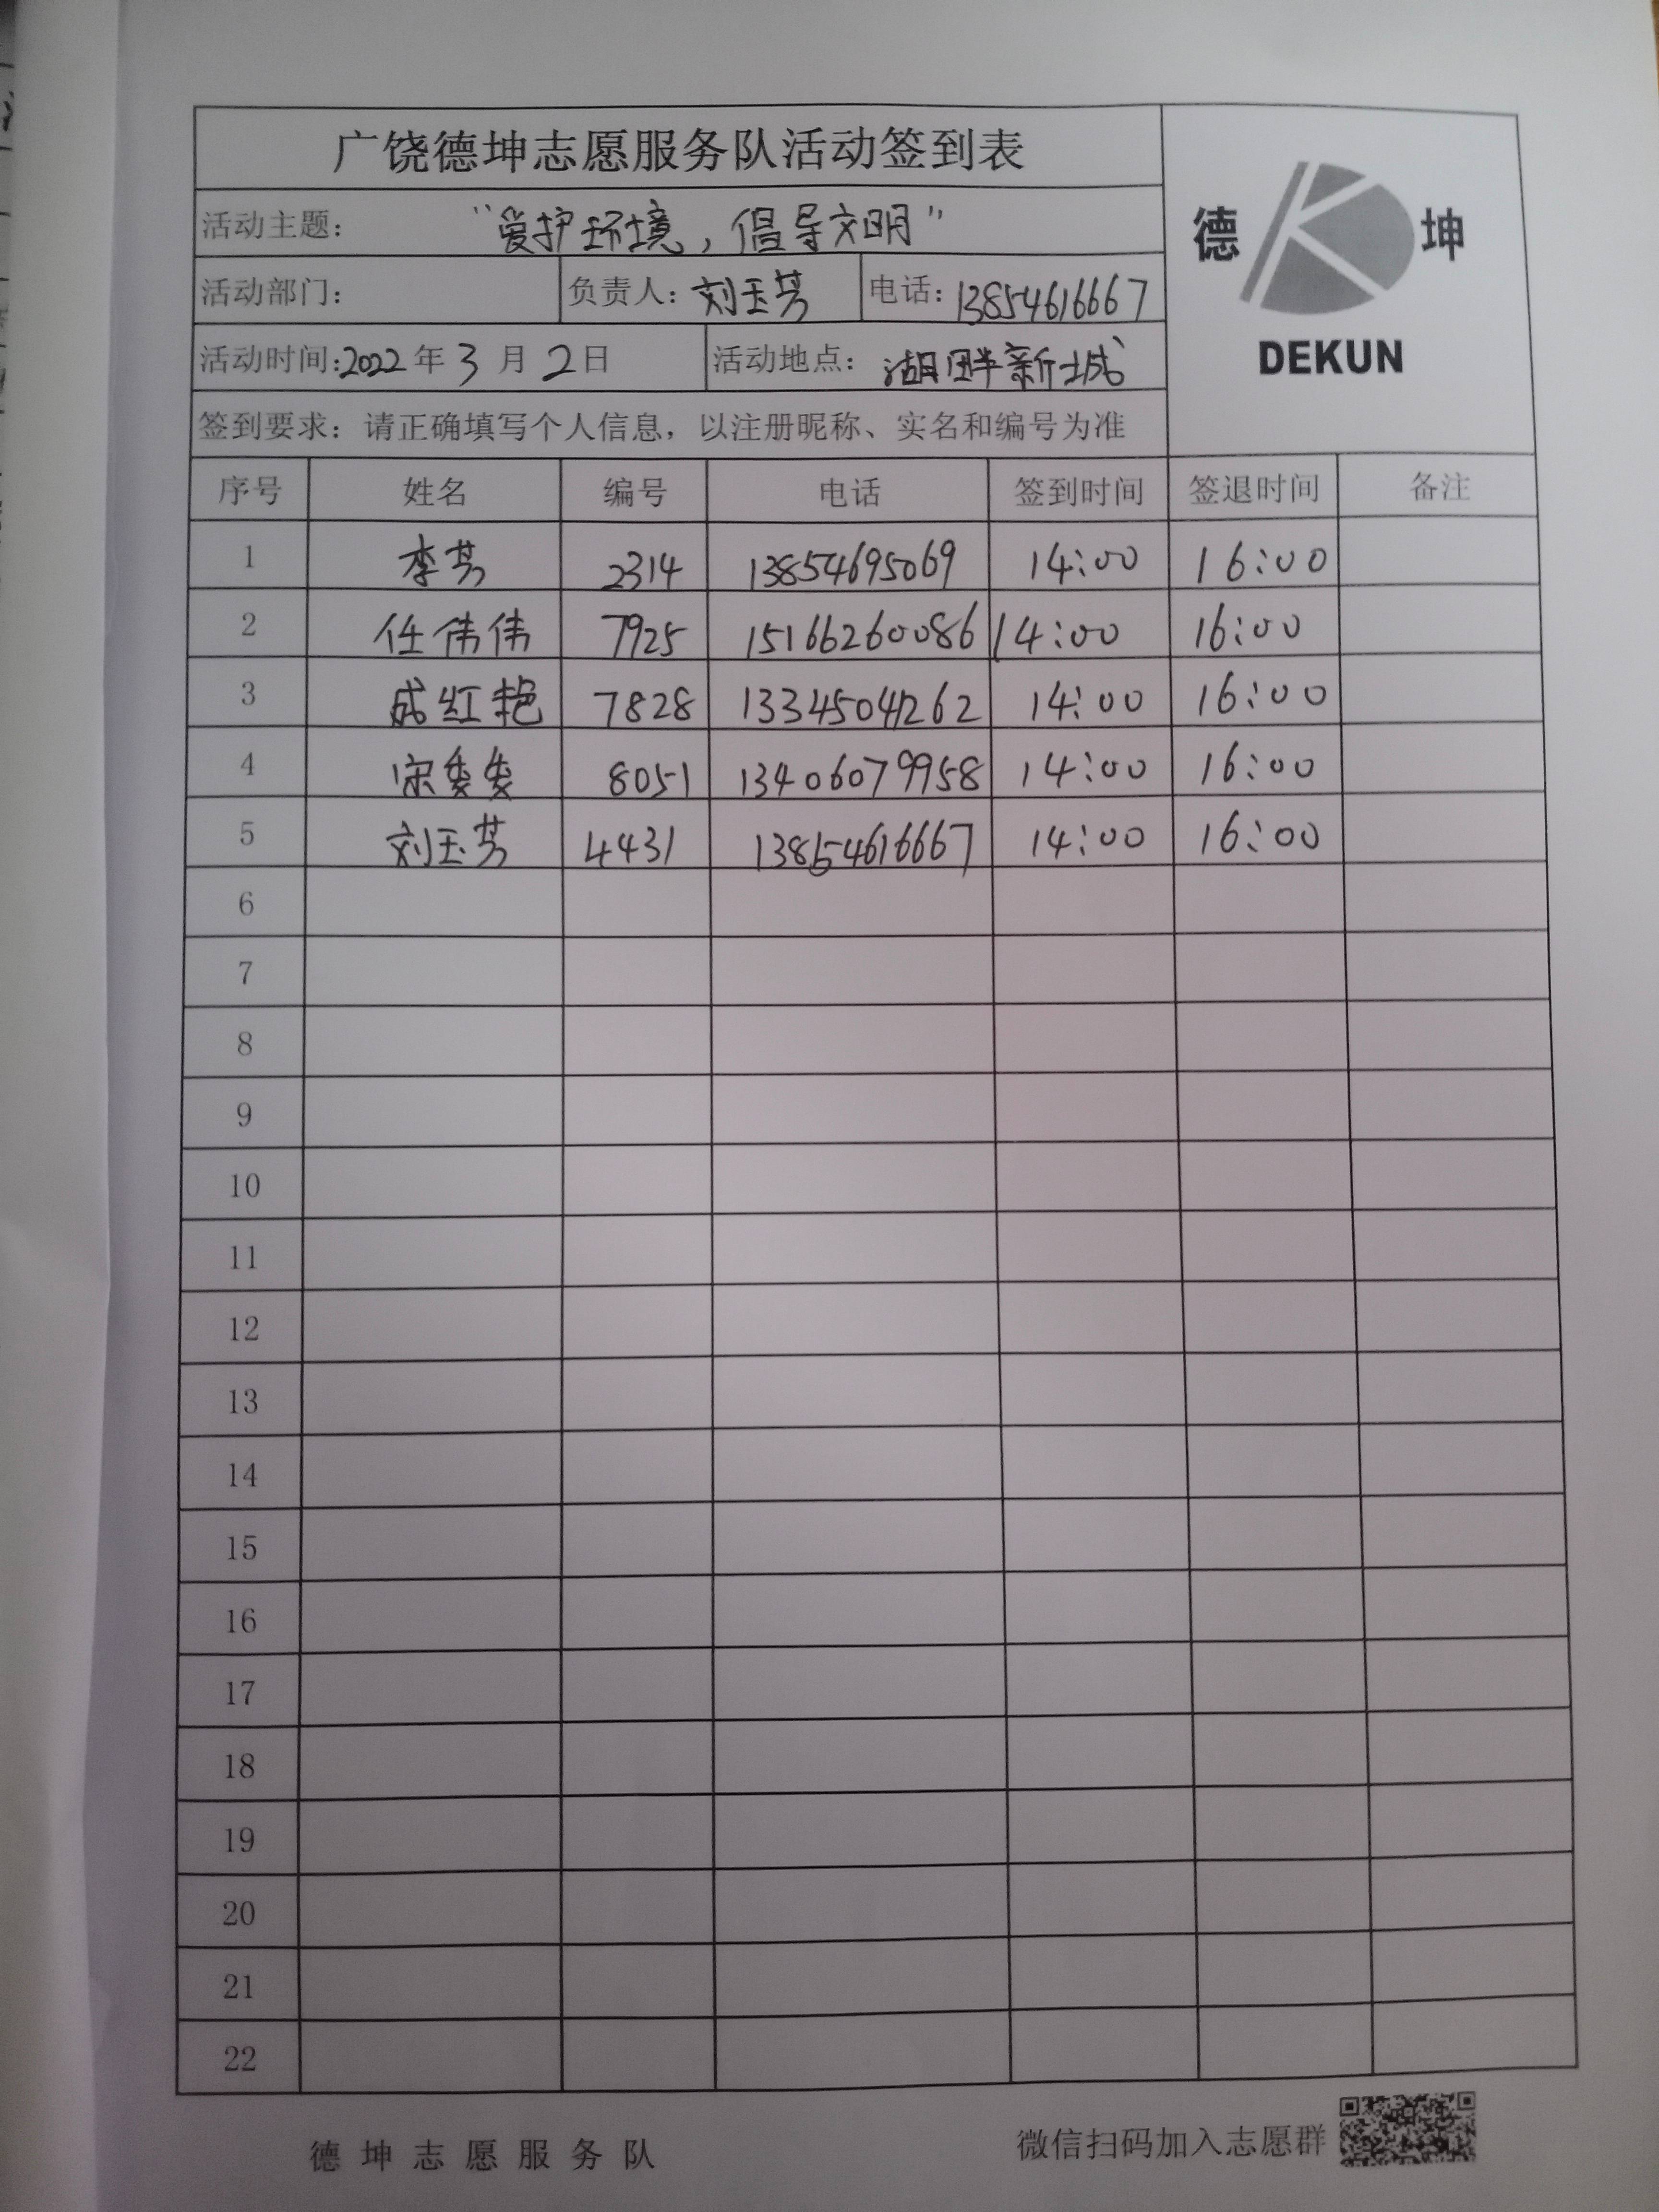 广饶德坤志愿服务队活动签到表
德 坤
DEKUN
活动主题： “爱护环境，倡导文明”
活动部门： 负责人：刘玉芳 电话：13854616667
活动时间：2022年3月2日 活动地点：湖畔新城
签到要求：请正确填写个人信息，以注册昵称、实名和编号为准
序号 姓名 编号 电话 签到时间 签退时间 备注
1 李芳 2314 13854695069 14:00 16:00
2 任伟伟 7925 15166260086 14:00 16:00
3 成红艳 7828 13345041262 14:00 16:00
4 宋 8051 13406079958 14:00 16:00
5 刘玉芳 4431 13854616667 14:00 16:00
6
7
8
9
10
11
12
13
14
15
16
17
18
19
20
21
22
德坤志愿服务队 微信扫码加入志愿群